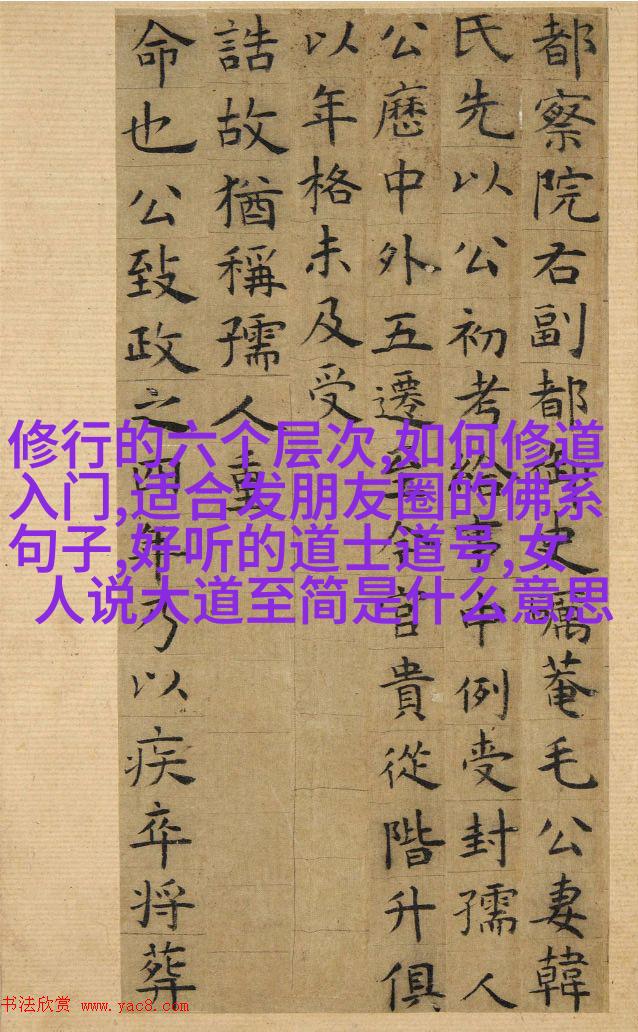 都察院右副都御史礪菴毛公妻韓
氏先以公初考給事中例受封孺人
公歷中外五遷至今官貴從階升俱
以年格未及受
誥故猶稱孺人重
命也公致政之四年乃以疾卒将葬
修行的六个层次,如何修道
入门,适合发朋友圈的佛系
句子,好听的道士道号,女
人说大道至简是什么意思
书法欣赏 www.yac8.com